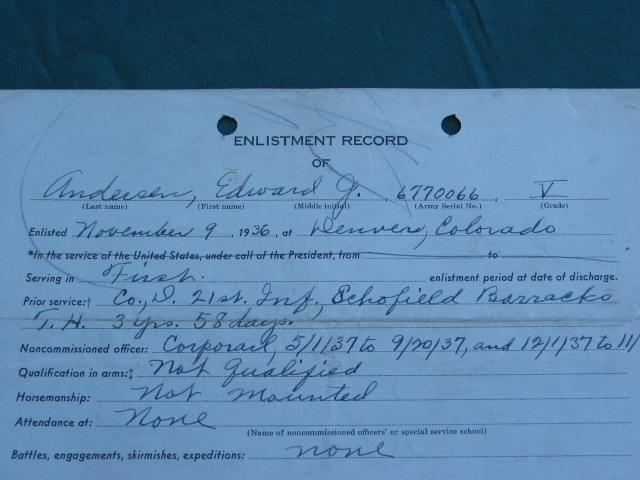 ENLISTMENT RECORD
OF
Andersen, Edward J. , 6770066 , V
(Last name) (First name) (Middle initial) (Army Serial No.) (Grade)
Enlisted November 9 , 1936 , at Denver, Colorado
*In the service of the United States, under call of the President, from to
Serving in First. enlistment period at date of discharge.
Prior service:† Co., D. 21st. Inf., Schofield Barracks
T. H. 3 yrs. 58 days.
Noncommissioned officer: Corporail, 5/1/37 to 9/20/37, and 12/1/37 to 11/
Qualification in arms:‡ Not Qualified
Horsemanship: Not Mounted
Attendance at: None
(Name of noncommissioned officers' or special service school)
Battles, engagements, skirmishes, expeditions: none